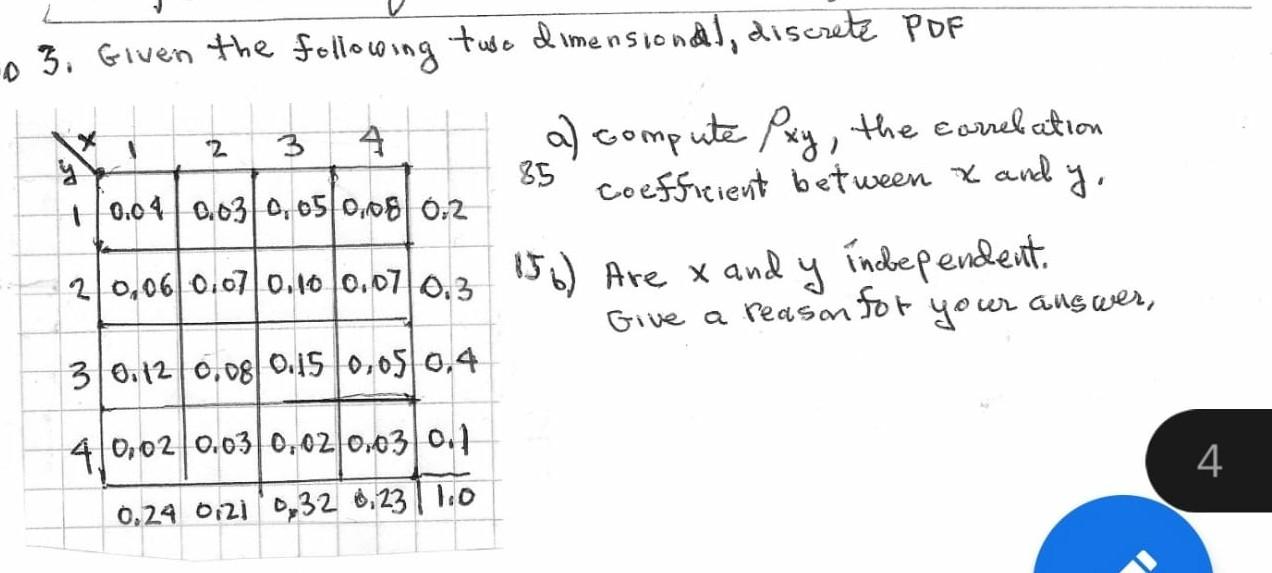 3. Given the following two dimensional, discrete PDF
x 1 2 3 4
y
1 0.04 0.03 0.05 0.08 0.2
2 0.06 0.07 0.10 0.07 0.3
3 0.12 0.08 0.15 0.05 0.4
4 0.02 0.03 0.02 0.03 0.1
0.24 0.21 0.32 0.23 1.0
a) compute ρxy, the correlation
85 coefficient between x and y.
15 b) Are x and y independent.
Give a reason for your answer,
4